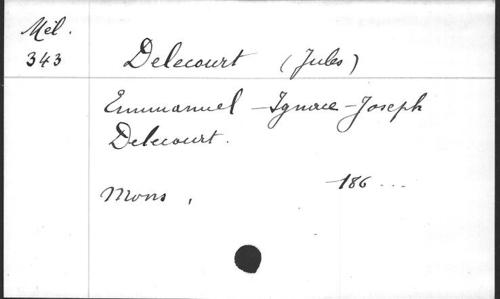 Mél.
343
Delecourt (Jules)
Emmanuel-Ignace-Joseph
Delecourt.
Mons, 186...